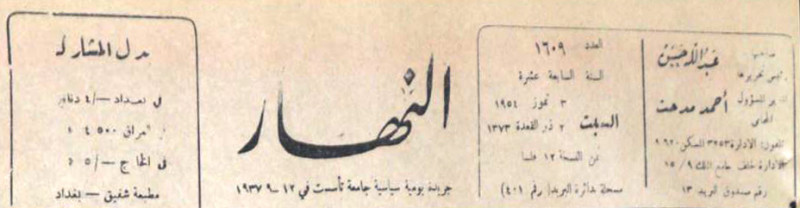 صاحبها
عبدالله حسين
رئيس تحريرها
المدير المسؤول
أحمد مدحت
المحامي
تلفون: الادارة ٣٢٥٣ المسكن
الادارة خلف جامع الملك ١٥/٩
رقم صندوق البريد ١٣
العدد ١٦٠٩
السنة السابعة عشرة
٣ تموز ١٩٥٤
السبت
٢ ذو القعدة ١٣٧٣
ثمن النسخة ١٢ فلسا
مسجلة بدائرة البريد (رقم ٤٠١)
النهار
جريدة يومية سياسية جامعة تأسست في ١٢-٩-١٩٣٧
بدل المشارك
في بغداد —/٤ دنانير
في العراق ٤٥٠٠ »
في الخارج —/٥ »
مطبعة شفيق — بغداد